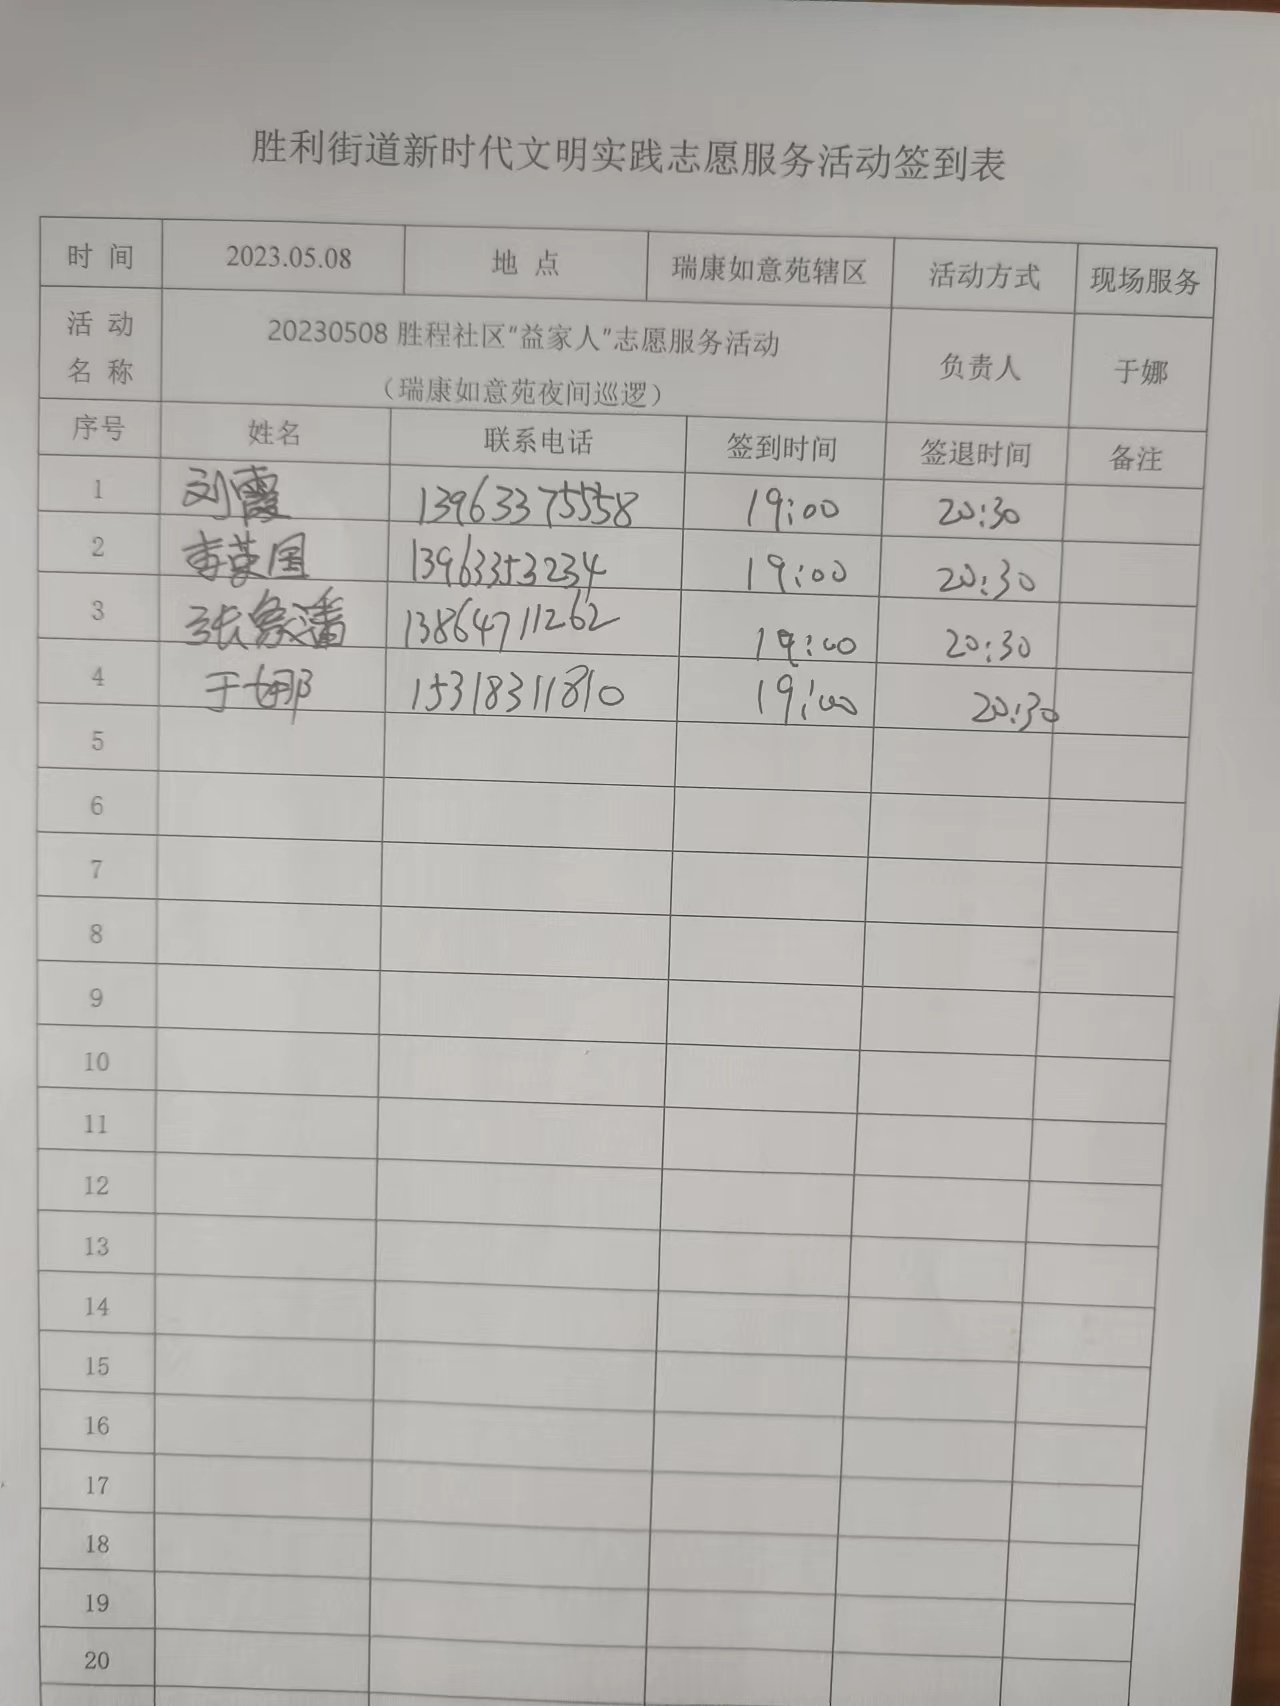 胜利街道新时代文明实践志愿服务活动签到表
时 间 2023.05.08 地 点 瑞康如意苑辖区 活动方式 现场服务
活 动 名 称 20230508 胜程社区“益家人”志愿服务活动 负责人 于娜
（瑞康如意苑夜间巡逻）
序号 姓名 联系电话 签到时间 签退时间 备注
1 刘霞 13963375558 19:00 20:30
2 李英国 13963353234 19:00 20:30
3 张 13864711262 19:00 20:30
4 于娜 15318311810 19:00 20:30
5
6
7
8
9
10
11
12
13
14
15
16
17
18
19
20